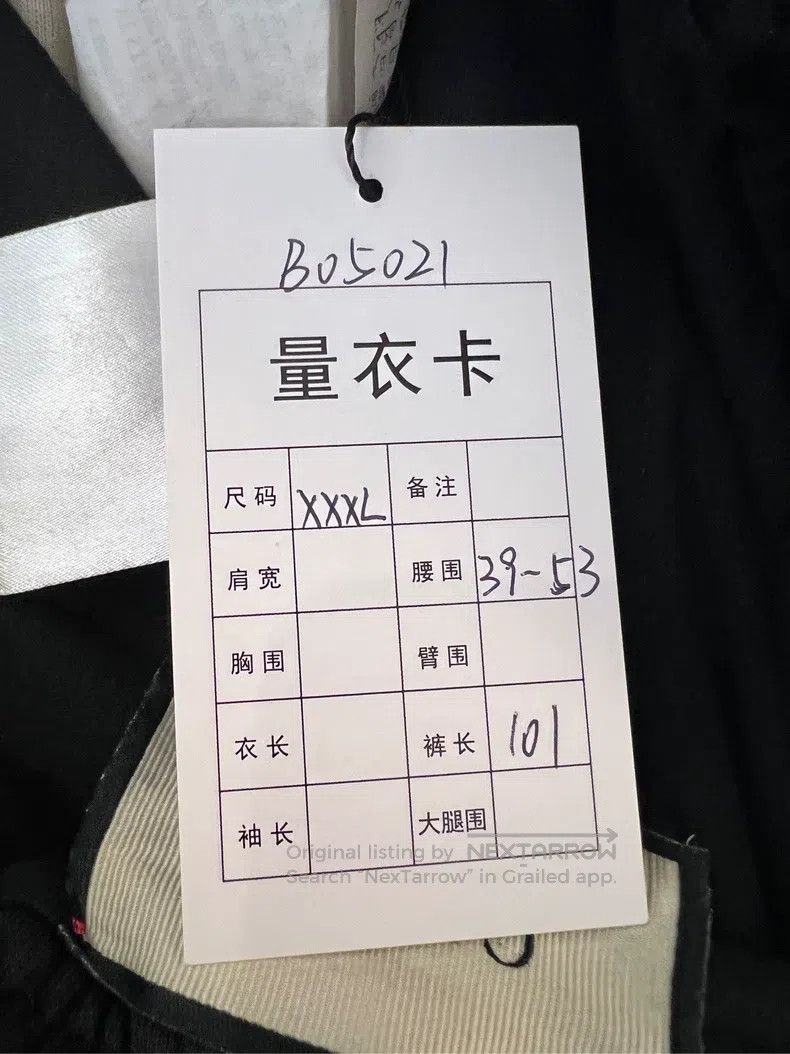 B05021
量衣卡
尺码 XXXL 备注
肩宽 腰围 39-53
胸围 臂围
衣长 裤长 101
袖长 大腿围
Original listing by NEXTARROW
Search "NexTarrow" in Grailed app.